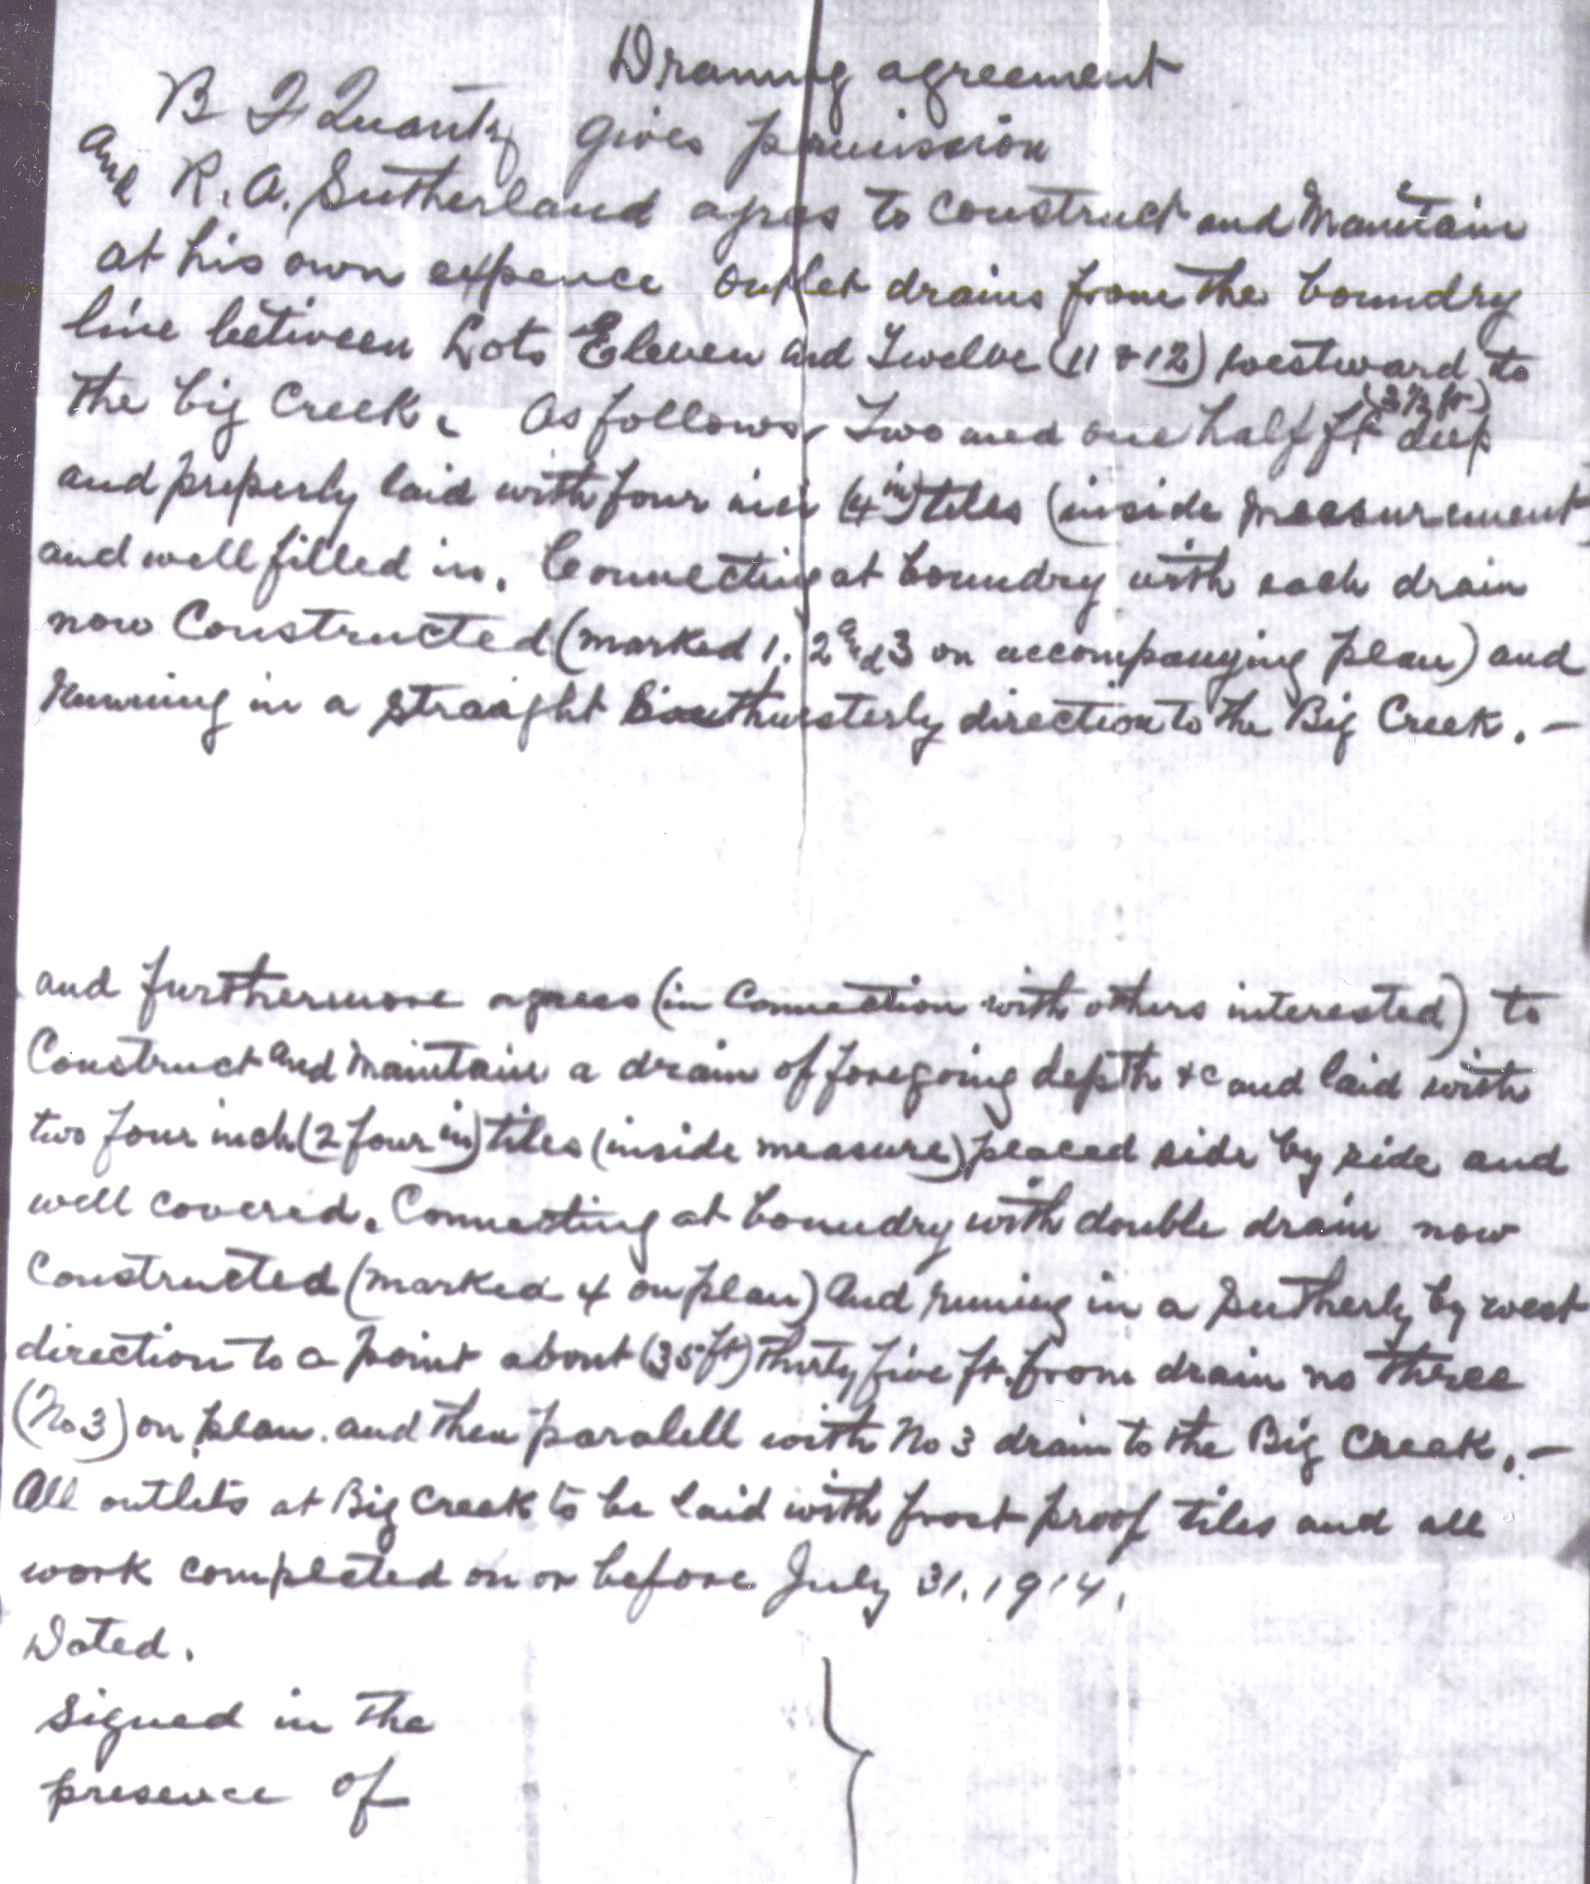 Draning agreement
B F Quantz gives permission
and R. A. Sutherland agrees to construct and Maintain
at his own expence outlet drains from the boundry
line between Lots Eleven and Twelve (11 & 12) westward to
the big Creek. As follows Two and one half ft (2 1/2 ft) deep
and properly laid with four inch (4 in) tiles (inside measurement
and well filled in. Connecting at boundry with each drain
now Constructed (marked 1. 2 and 3 on accompanying plan) and
Running in a straight Southwesterly direction to the Big Creek. –
and furthermore agrees (in Connection with others interested) to
Construct and Maintain a drain of foregoing depth &c and laid with
two four inch (2 four in) tiles (inside measure) placed side by side and
well covered. Connecting at boundry with double drain now
Constructed (marked 4 on plan) And runing in a Sutherly by west
direction to a point about (35 ft) thirty five ft. from drain no three
(No 3) on plan. and then paralell with No 3 drain to the Big Creek. –
All outlets at Big Creek to be laid with frost proof tiles and all
work completed on or before July 31. 1914.
Dated.
Signed in the
presence of